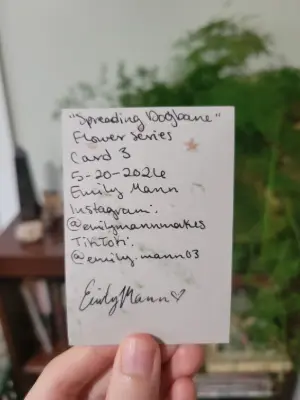 "Spreading Dogbane"
Flower Series
Card 3
5-20-2026
Emily Mann
Instagram:
@emilymannmakes
TikTok:
@emily.mann03
Emily Mann♡